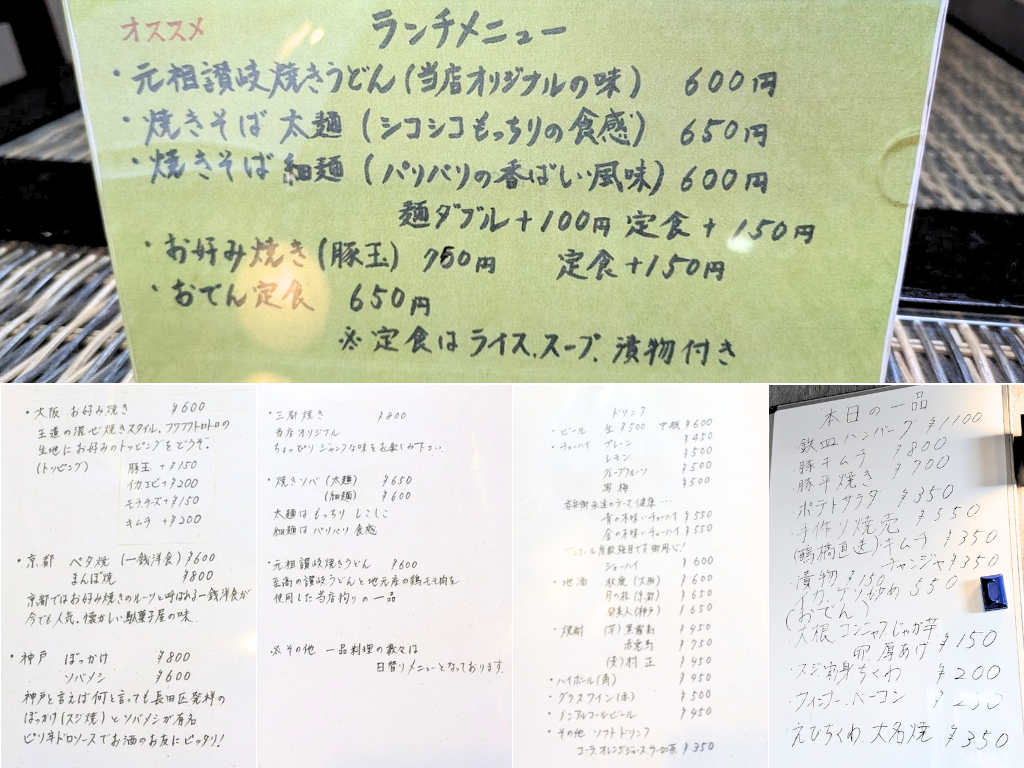 オススメ ランチメニュー
・元祖讃岐焼きうどん(当店オリジナルの味) 600円
・焼きそば 太麺 (シコシコもっちりの食感) 650円
・焼きそば 細麺 (パリパリの香ばしい風味) 600円
麺ダブル+100円 定食+150円
・お好み焼き(豚玉) 750円 定食+150円
・おでん定食 650円
※定食はライス、スープ、漬物付き
・大阪 お好み焼き ¥600
王道の混ぜ焼きスタイル、フワフワトロトロの
生地にお好みのトッピングをどうぞ。
(トッピング) 豚玉 +¥150
イカエビ+¥200
モチチーズ+¥150
キムラ +¥200
・京都 ベタ焼 (一銭洋食) ¥600
まんぼ焼 ¥800
京都ではお好み焼きのルーツと呼ばれる一銭洋食が
今でも人気。懐かしい駄菓子屋の味。
・神戸 ぼっかけ ¥800
ソバメシ ¥600
神戸と言えば何と言っても長田区発祥の
ぼっかけ(スジ焼)とソバメシが有名
ピリ辛ドロソースでお酒のお友にピッタリ!
・三都焼き ¥800
当店オリジナル
ちょっぴりジャンクな味をお楽しみ下さい
・焼きソバ (太麺) ¥650
(細麺) ¥600
太麺は もっちり しこしこ
細麺は パリパリ 食感
・元祖讃岐焼きうどん ¥600
至高の讃岐うどんと地元産の鶏モモ肉を
使用した当店拘りの一品
※その他 一品料理の数々は
日替りメニューとなっております。
ドリンク
・ビール 生 ¥500 中瓶 ¥600
・チューハイ プレーン ¥450
レモン ¥500
グレープフルーツ ¥500
男梅 ¥500
青の不味いチューハイ ¥550
金の不味いチューハイ ¥550
アルコール度数強目です御用心!
シューハイ ¥600
・地酒 秋鹿(大阪) ¥600
月の桂(京都) ¥650
(神戸) ¥650
・焼酎 (芋)黒霧島 ¥450
赤兎馬 ¥750
(麦)村正 ¥450
・ハイボール(角) ¥450
・グラスワイン(赤) ¥500
・ノンアルコールビール ¥450
・その他 ソフトドリンク
コーラ、オレンジジュース、ウーロン茶 ¥350
本日の一品
・鉄皿ハンバーグ ¥1100
・豚キムラ ¥800
・豚平焼き ¥700
・ポテトサラダ ¥350
・手作り焼売 ¥550
(鶴橋直送)キムラ ¥350
・漬物 ¥150 チャンジャ ¥350
・イカ、ゲソ炒め 550
(おでん)
大根 コンニャク じゃが芋
卵 厚あげ ¥150
・スジ ちくわ ¥200
・ウインナー、ベーコン ¥250
・えびちくわ、大名焼 ¥350